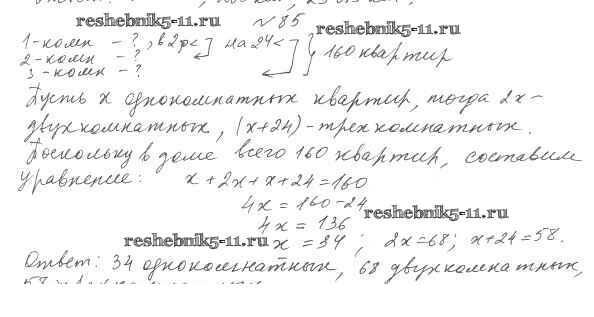 reshebnik5-11.ru
№ 85
reshebnik5-11.ru
1-комн - ?, в 2р <
2-комн - ? на 24 < 160 квартир
3-комн - ?
Пусть х однокомнатных квартир, тогда 2х-
двухкомнатных, (х+24)-трехкомнатных.
Поскольку в доме всего 160 квартир, составим
уравнение: х+2х+х+24=160
4х = 160-24
4х = 136
reshebnik5-11.ru
reshebnik5-11.ru
х = 34 ; 2х=68; х+24=58.
Ответ: 34 однокомнатных, 68 двухкомнатных,